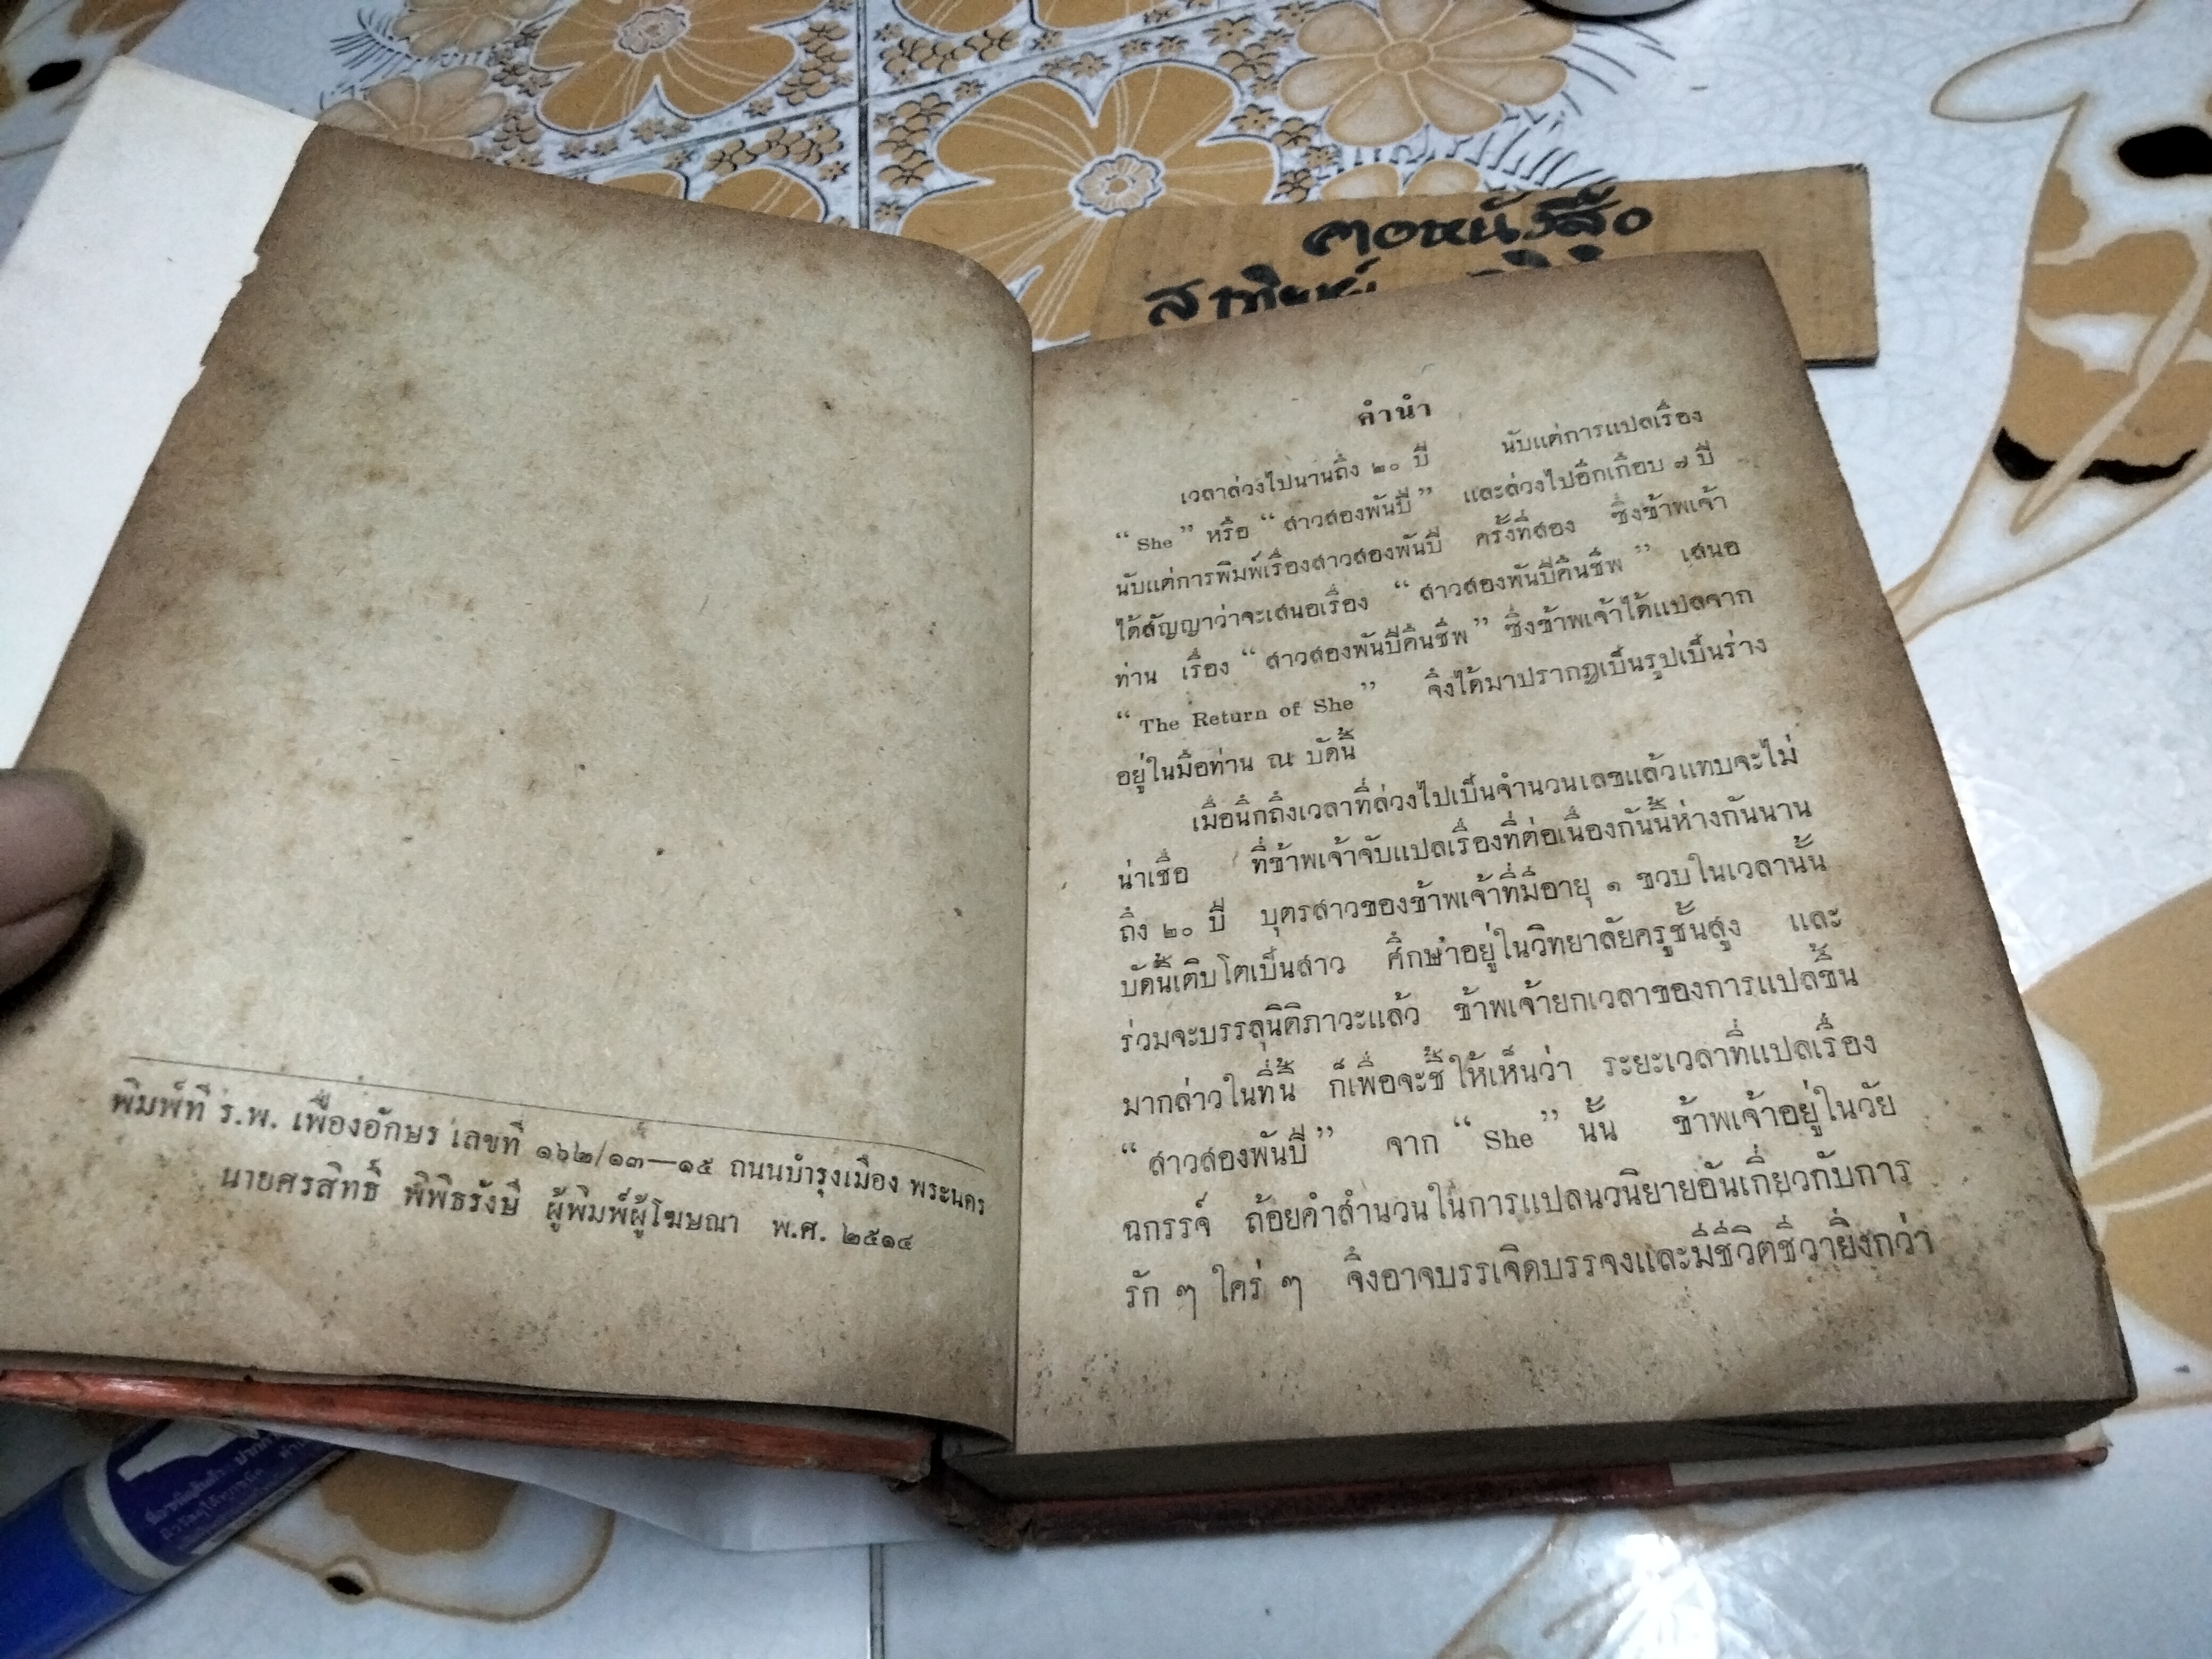 คอหนังสือ
พิมพ์ที่ ร.พ. เฟื่องอักษร เลขที่ ๑๖๒/๑๓—๑๕ ถนนบำรุงเมือง พระนคร
นายศรสิทธิ์ พิพิธรังษี ผู้พิมพ์ผู้โฆษณา พ.ศ. ๒๕๑๔
คำนำ
เวลาล่วงไปนานถึง ๒๐ ปี นับแต่การแปลเรื่อง
“ She ” หรือ “ สาวสองพันปี ” และล่วงไปอีกเกือบ ๗ ปี
นับแต่การพิมพ์เรื่องสาวสองพันปี ครั้งที่สอง ซึ่งข้าพเจ้า
ได้สัญญาว่าจะเสนอเรื่อง “ สาวสองพันปีคืนชีพ ” เสนอ
ท่าน เรื่อง “ สาวสองพันปีคืนชีพ ” ซึ่งข้าพเจ้าได้แปลจาก
“ The Return of She ” จึงได้มาปรากฏเป็นรูปเป็นร่าง
อยู่ในมือท่าน ณ บัดนี้
เมื่อนึกถึงเวลาที่ล่วงไปเป็นจำนวนเลขแล้วแทบจะไม่
น่าเชื่อ ที่ข้าพเจ้าจับแปลเรื่องที่ต่อเนื่องกันนี้ห่างกันนาน
ถึง ๒๐ ปี บุตรสาวของข้าพเจ้าที่มีอายุ ๑ ขวบในเวลานั้น
บัดนี้เติบโตเป็นสาว ศึกษาอยู่ในวิทยาลัยครูชั้นสูง และ
ร่วมจะบรรลุนิติภาวะแล้ว ข้าพเจ้ายกเวลาของการแปลขึ้น
มากล่าวในที่นี้ ก็เพื่อจะชี้ให้เห็นว่า ระยะเวลาที่แปลเรื่อง
“ สาวสองพันปี ” จาก “ She ” นั้น ข้าพเจ้าอยู่ในวัย
ฉกรรจ์ ถ้อยคำสำนวนในการแปลนวนิยายอันเกี่ยวกับการ
รัก ๆ ใคร่ ๆ จึงอาจบรรเจิดบรรจงและมีชีวิตชีวายิ่งกว่า